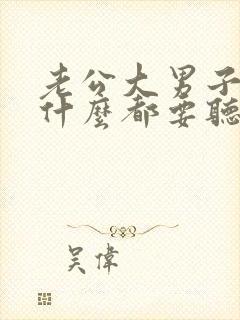 老公大男子
什麼都要聽
吴偉